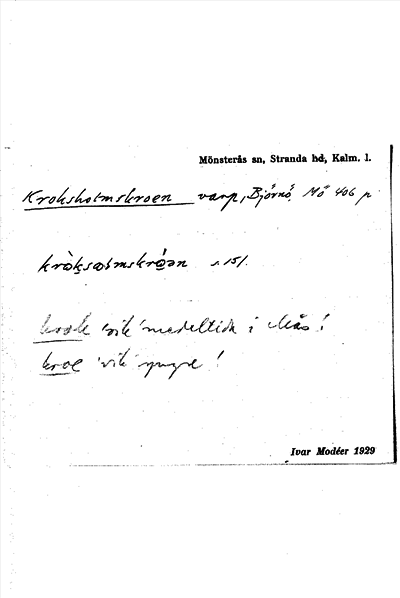 Mönsterås sn, Stranda hd, Kalm. l.
Kroksholmskroen varp, Björnö. Mö 406 p
s. 151.
krok 'vik' medeltida i Mås!
kroe 'vik' yngre!
Ivar Modéer 1929